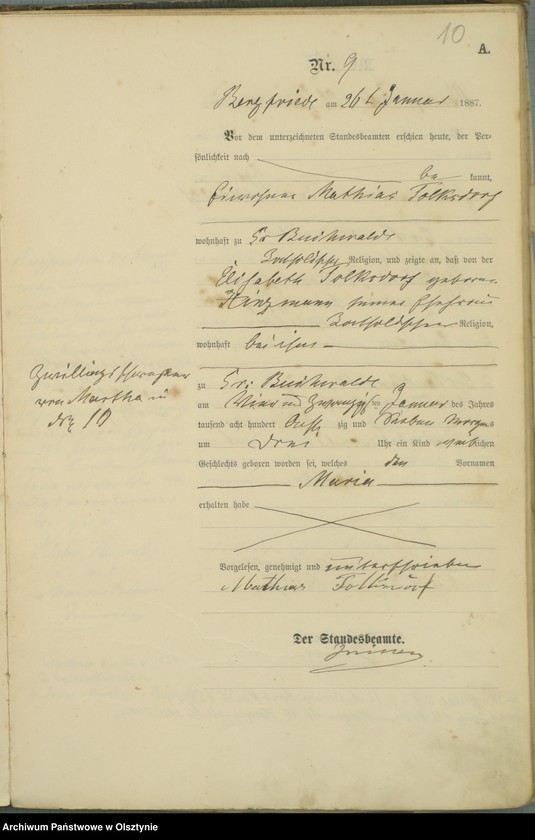 10
A.
Nr. 9
Bergfriede am 26t Januar 1887.
Vor dem unterzeichneten Standesbeamten erschien heute, der Per-
sönlichkeit nach
be kannt,
Einwohner Mathias Tolksdorf
wohnhaft zu Gr Buchwalde
katholischer Religion, und zeigte an, daß von der
Elisabeth Tolksdorf geborene
Hinzmann seiner Ehefrau
katholischer Religion,
wohnhaft bei ihm
zu Gr: Buchwalde
am Vier und Zwanzigsten Januar des Jahres
tausend acht hundert acht zig und Sieben Morgens
um Drei Uhr ein Kind weiblichen
Geschlechts geboren worden sei, welches den Vornamen
Maria
erhalten habe
Zwillingsschwester
von Martha
10
Vorgelesen, genehmigt und unterschrieben
Mathias Tolksdorf
Der Standesbeamte.
Archiwum Państwowe w Olsztynie